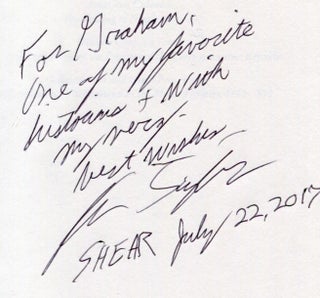 For Graham,
One of my favorite
historians & with
my very
best wishes,
SHEAR July 22, 2017